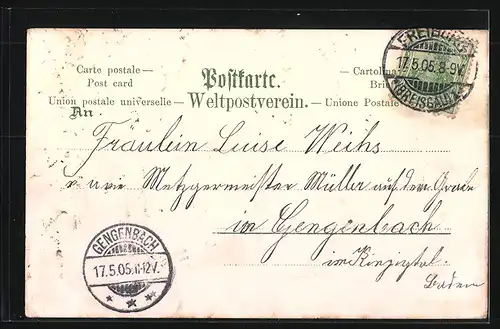 Carte postale —
Post card
Union postale universelle —
Postkarte.
Weltpostverein.
— Cartolina
Bri
— Unione Postale
FREIBURG
17.5.05.8-9V.
(BREISGAU)
An
Fräulein Luise Weihs
Metzgermeister Müller auf dem Grade
in Gengenbach
im Kinzigtal.
Baden
GENGENBACH
17.5.05.11-12V.